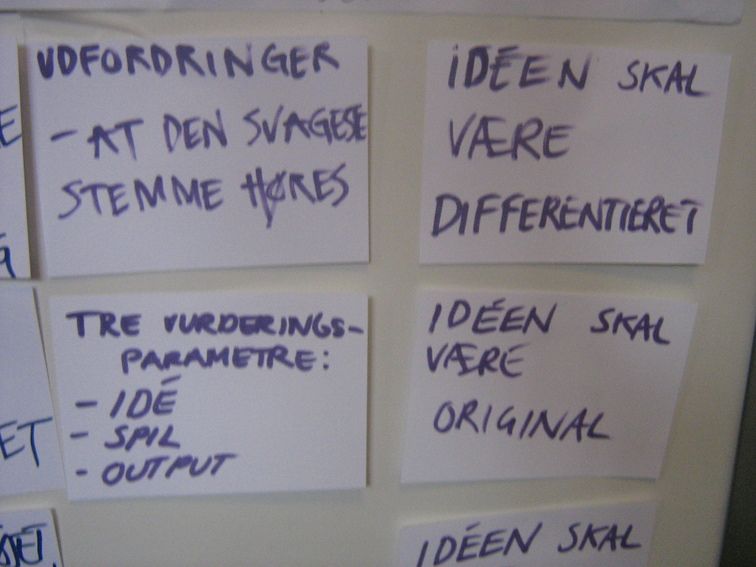 UDFORDRINGER
- AT DEN SVAGESE
STEMME HØRES
IDÉEN SKAL
VÆRE
DIFFERENTIERET
TRE VURDERINGS-
PARAMETRE:
- IDÉ
- SPIL
- OUTPUT
IDÉEN SKAL
VÆRE
ORIGINAL
ET
IDÉEN SKAL